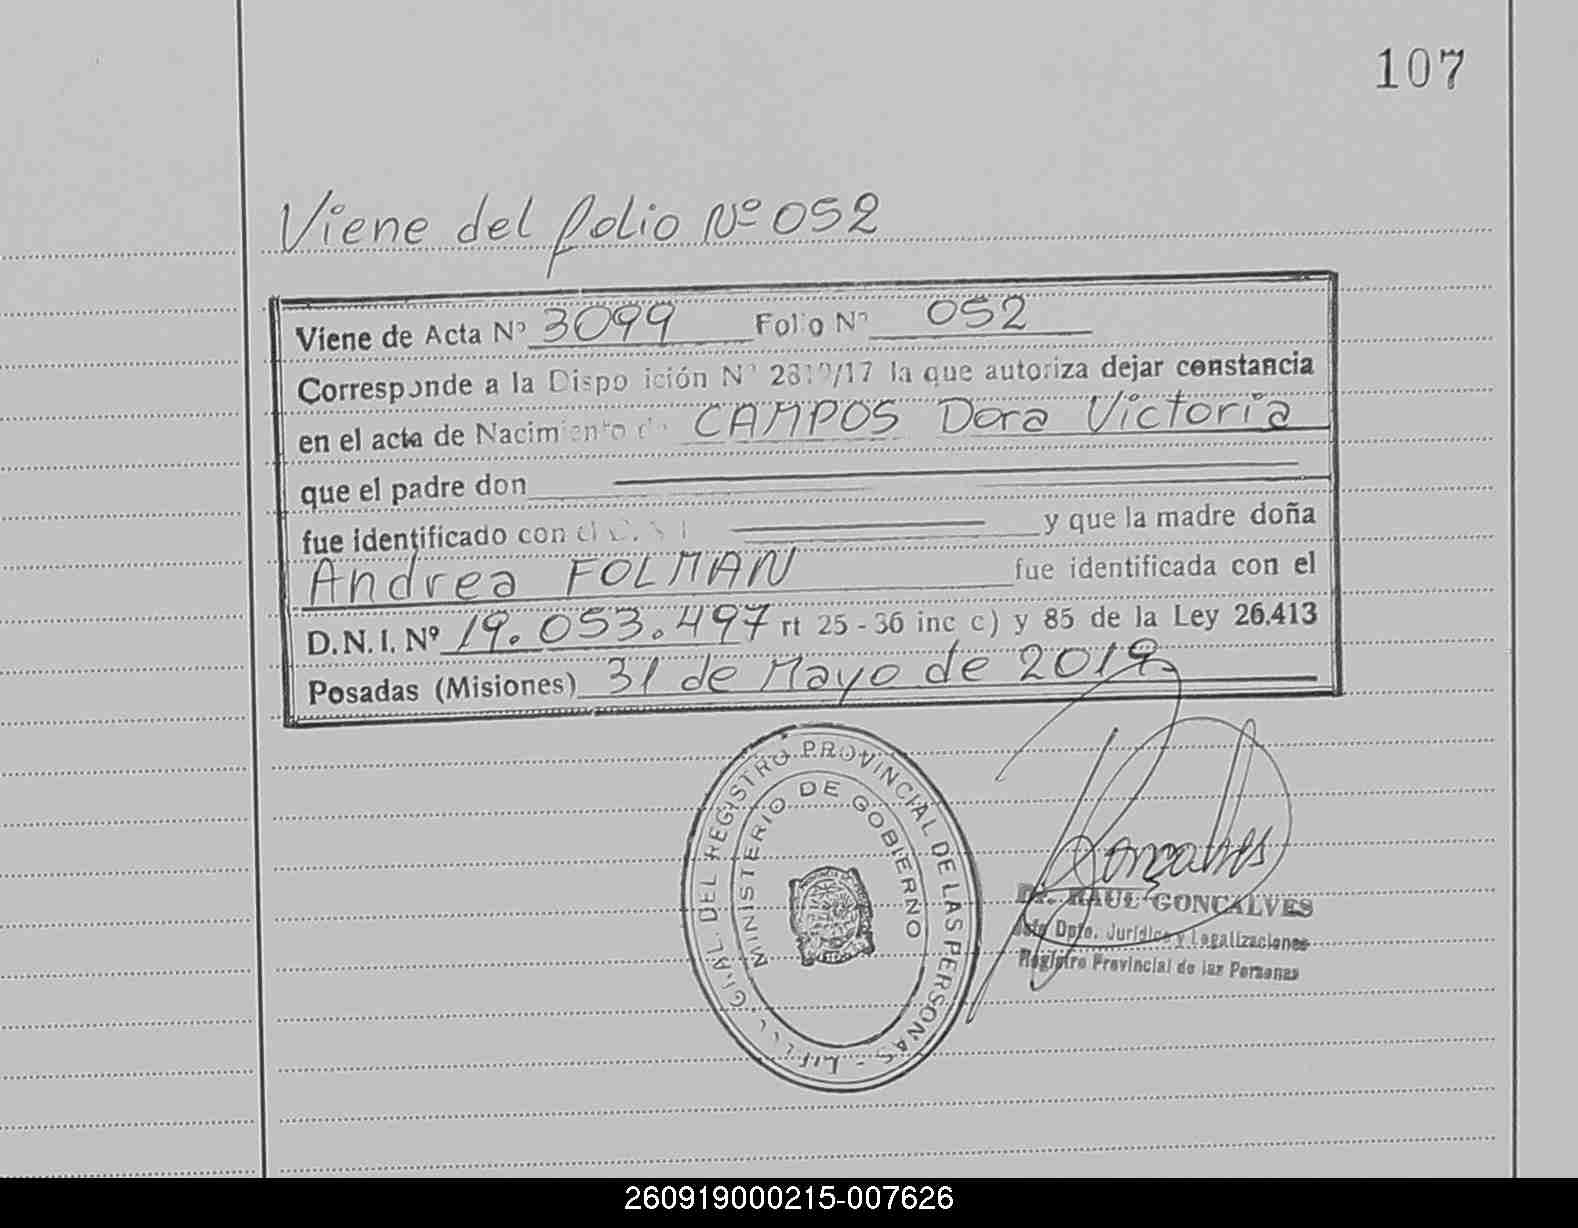 107
Viene del folio Nº 052
Viene de Acta Nº 3099 Folio Nº 052
Corresponde a la Disposición Nº /17 la que autoriza dejar constancia
en el acta de Nacimiento de CAMPOS Dora Victoria
que el padre don
fue identificado con y que la madre doña
Andrea FOLMAN fue identificada con el
D.N.I. Nº 19.053.497 rt 25 - 36 inc c) y 85 de la Ley 26.413
Posadas (Misiones) 31 de Mayo de 2019
DEL REGISTRO PROVINCIAL DE LAS PERSONAS
MINISTERIO DE GOBIERNO
Goncalves
Dr. RAUL GONCALVES
Jefe Dpto. Jurídico y Legalizaciones
Registro Provincial de las Personas
260919000215-007626